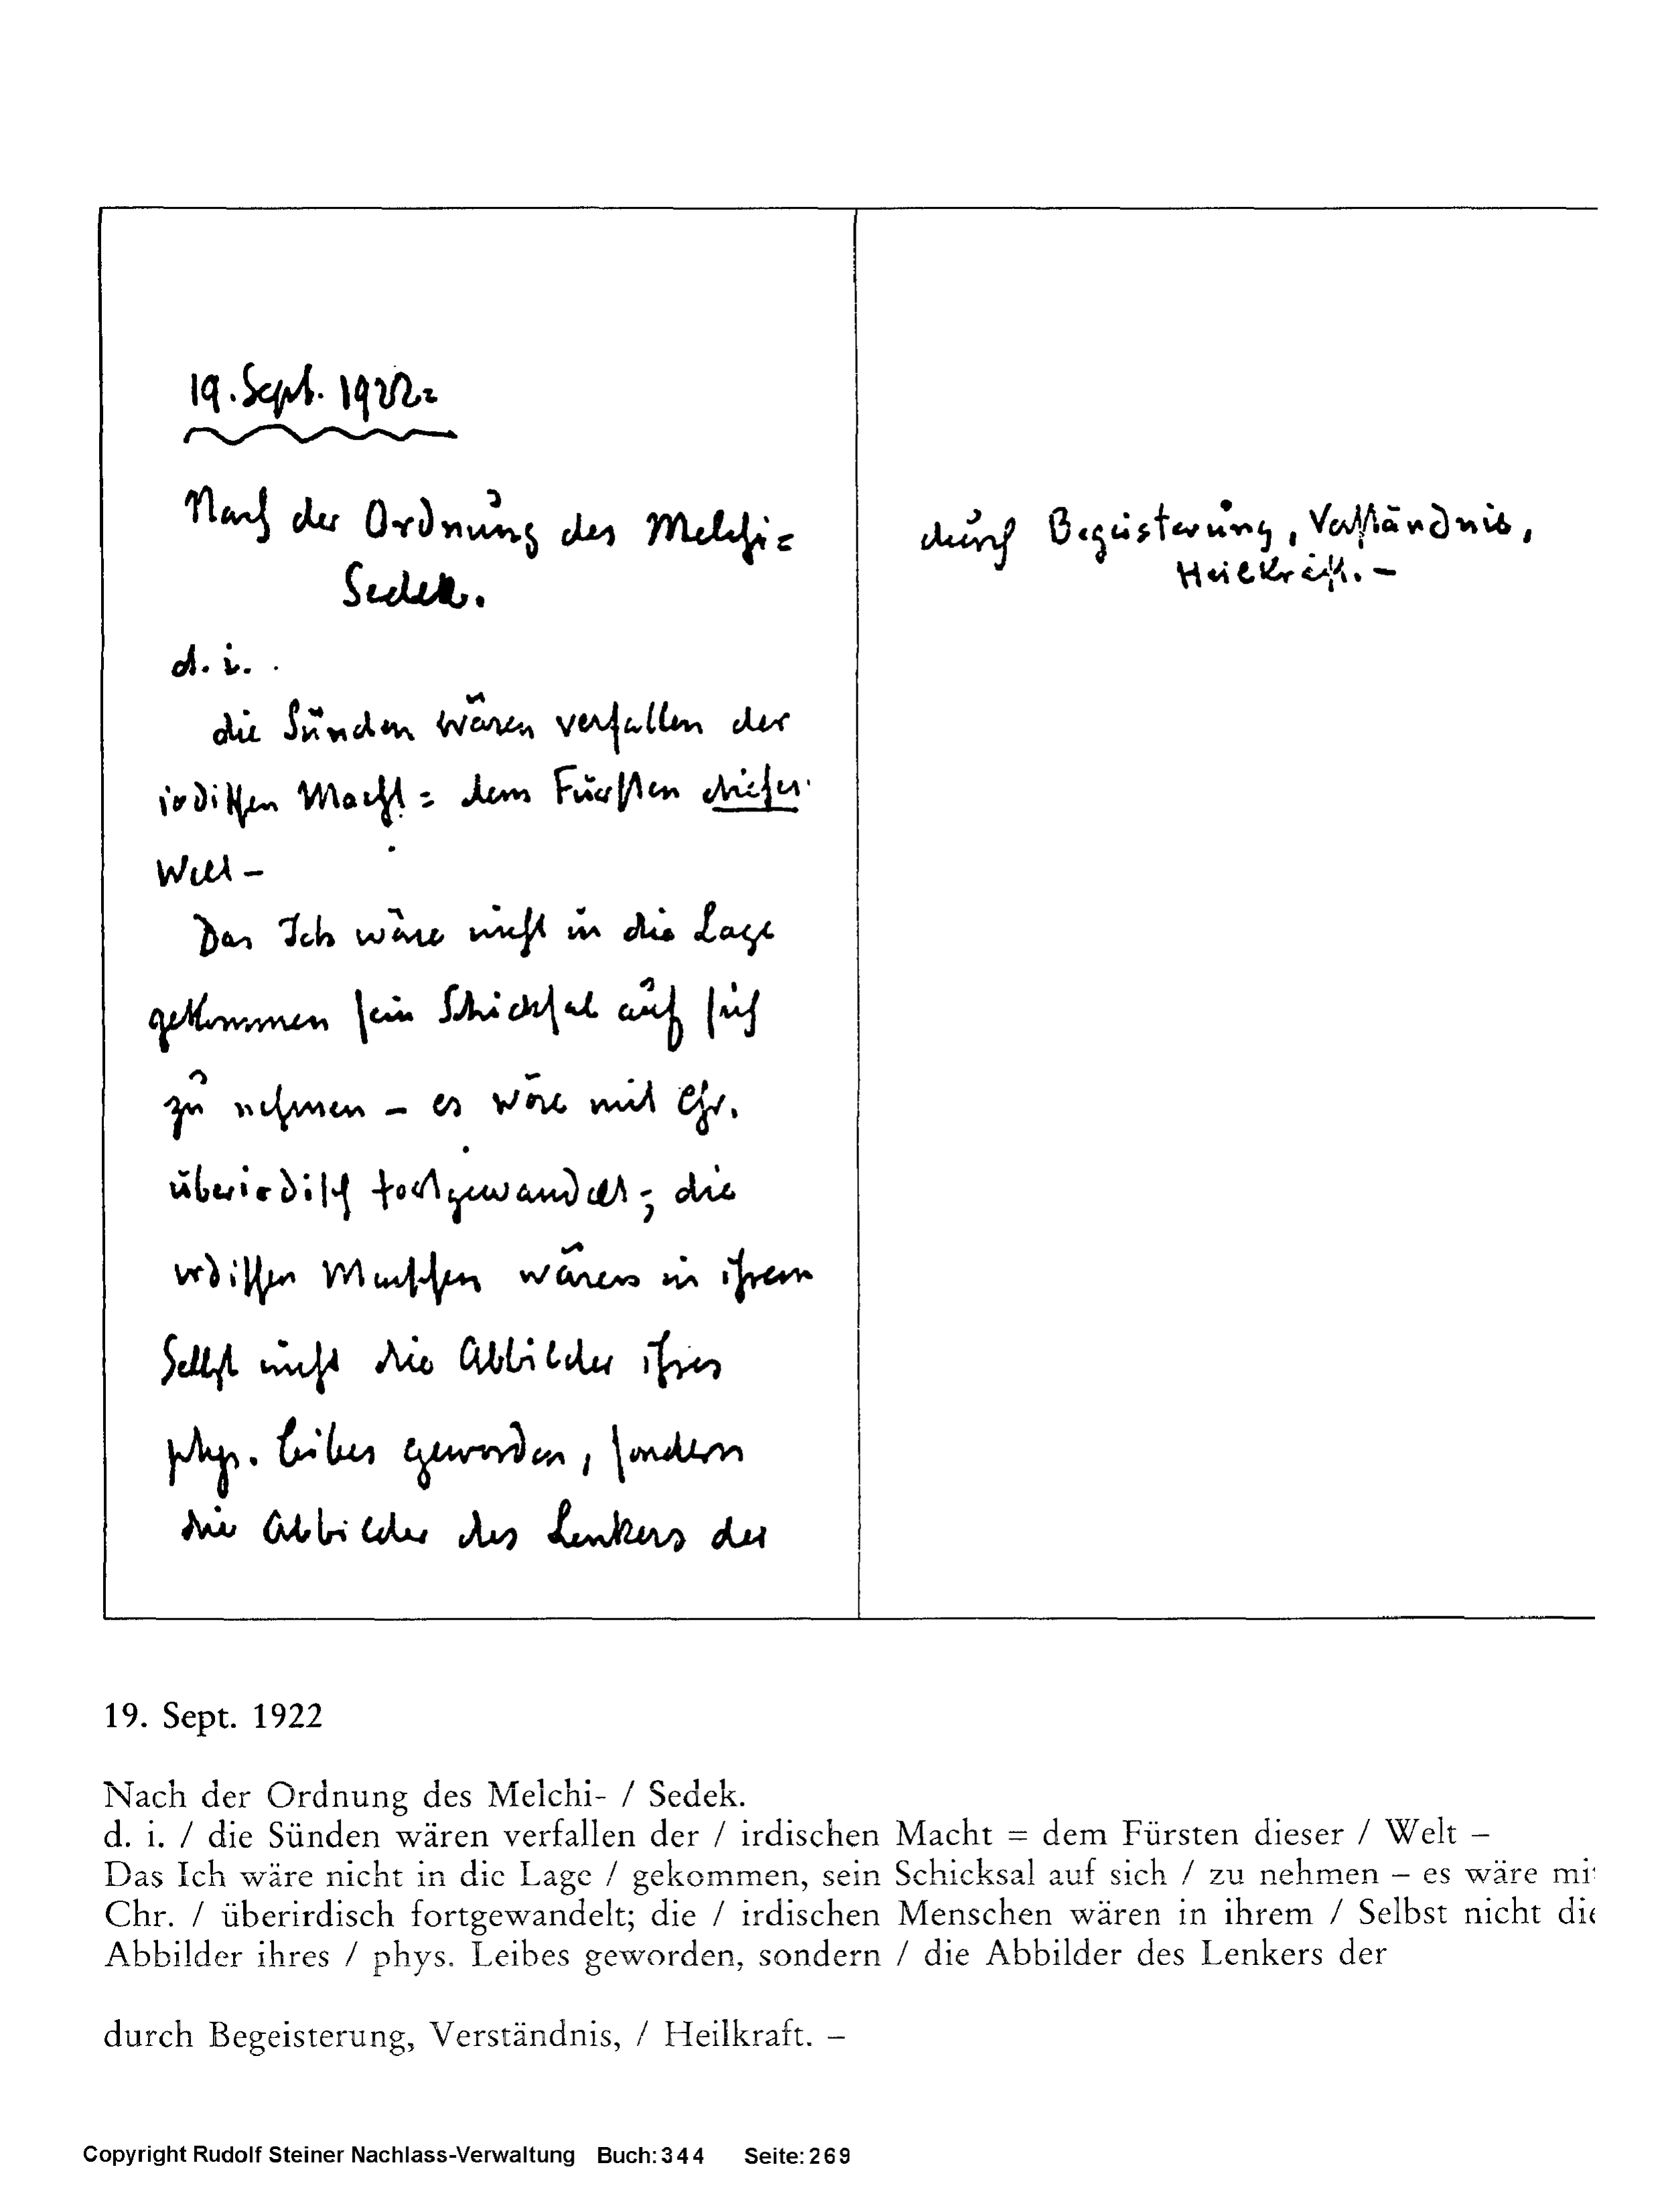 19. Sept. 1922=
Nach der Ordnung des Melchi=
Sedek.
d. i.
die Sünden wären verfallen der
irdischen Macht = dem Fürsten dieser
Welt –
Das Ich wäre nicht in die Lage
gekommen sein Schicksal auf sich
zu nehmen – es wäre mit Chr.
überirdisch fortgewandelt; die
irdischen Menschen wären in ihrem
Selbst nicht die Abbilder ihres
phys. Leibes geworden, sondern
die Abbilder des Lenkers der
durch Begeisterung, Verständnis,
Heilkraft. –
19. Sept. 1922
Nach der Ordnung des Melchi- / Sedek.
d. i. / die Sünden wären verfallen der / irdischen Macht = dem Fürsten dieser / Welt –
Das Ich wäre nicht in die Lage / gekommen, sein Schicksal auf sich / zu nehmen – es wäre mi
Chr. / überirdisch fortgewandelt; die / irdischen Menschen wären in ihrem / Selbst nicht die
Abbilder ihres / phys. Leibes geworden, sondern / die Abbilder des Lenkers der
durch Begeisterung, Verständnis, / Heilkraft. –
Copyright Rudolf Steiner Nachlass-Verwaltung Buch:344 Seite:269